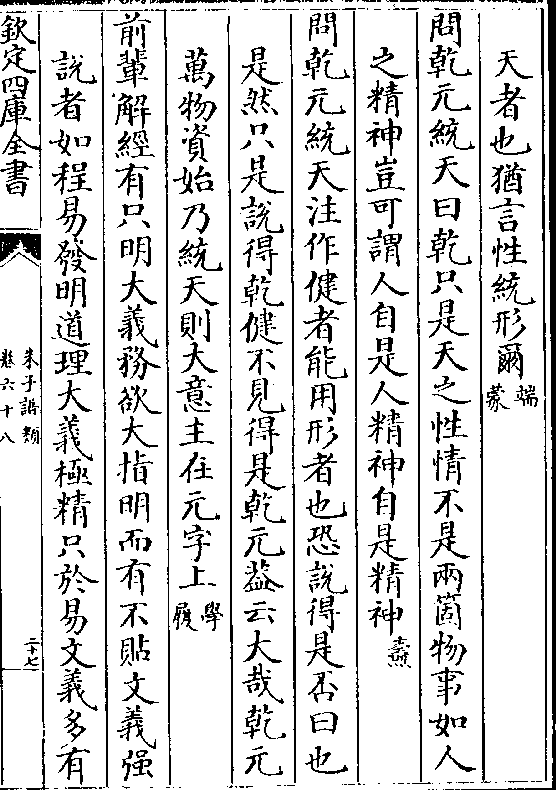 天者也猶言性統形爾端蒙
問乾元統天曰乾只是天之性情不是兩箇物事如人
之精神豈可謂人自是人精神自是精神燾
問乾元統天注作健者能用形者也恐說得是否曰也
是然只是說得乾健不見得是乾元葢云大哉乾元
萬物資始乃統天則大意主在元字上學履
前輩解經有只明大義務欲大指明而有不貼文義强
說者如程易發明道理大義極精只於易文義多有
欽定四庫全書
朱子語類
卷六十八
二十七